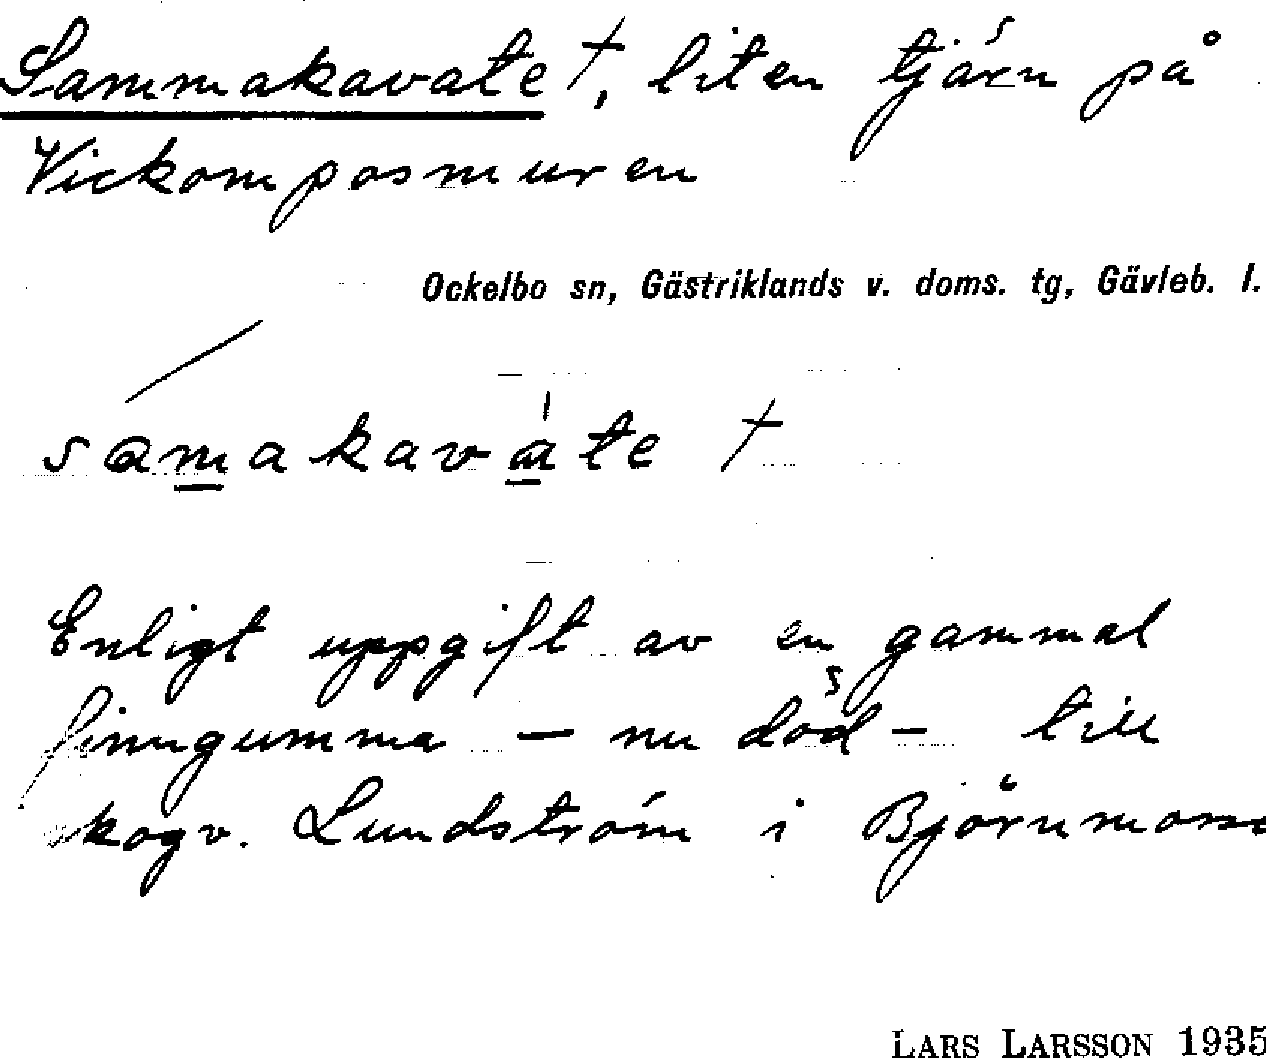 Sammakavate †, liten tjärn på
Vickomposmuren
Ockelbo sn, Gästriklands v. doms. tg, Gävleb. l.
samakavate †
Enligt uppgift av en gammal
finngumma – nu död – till
skogv. Lundström i Björnmosse
LARS LARSSON 1935